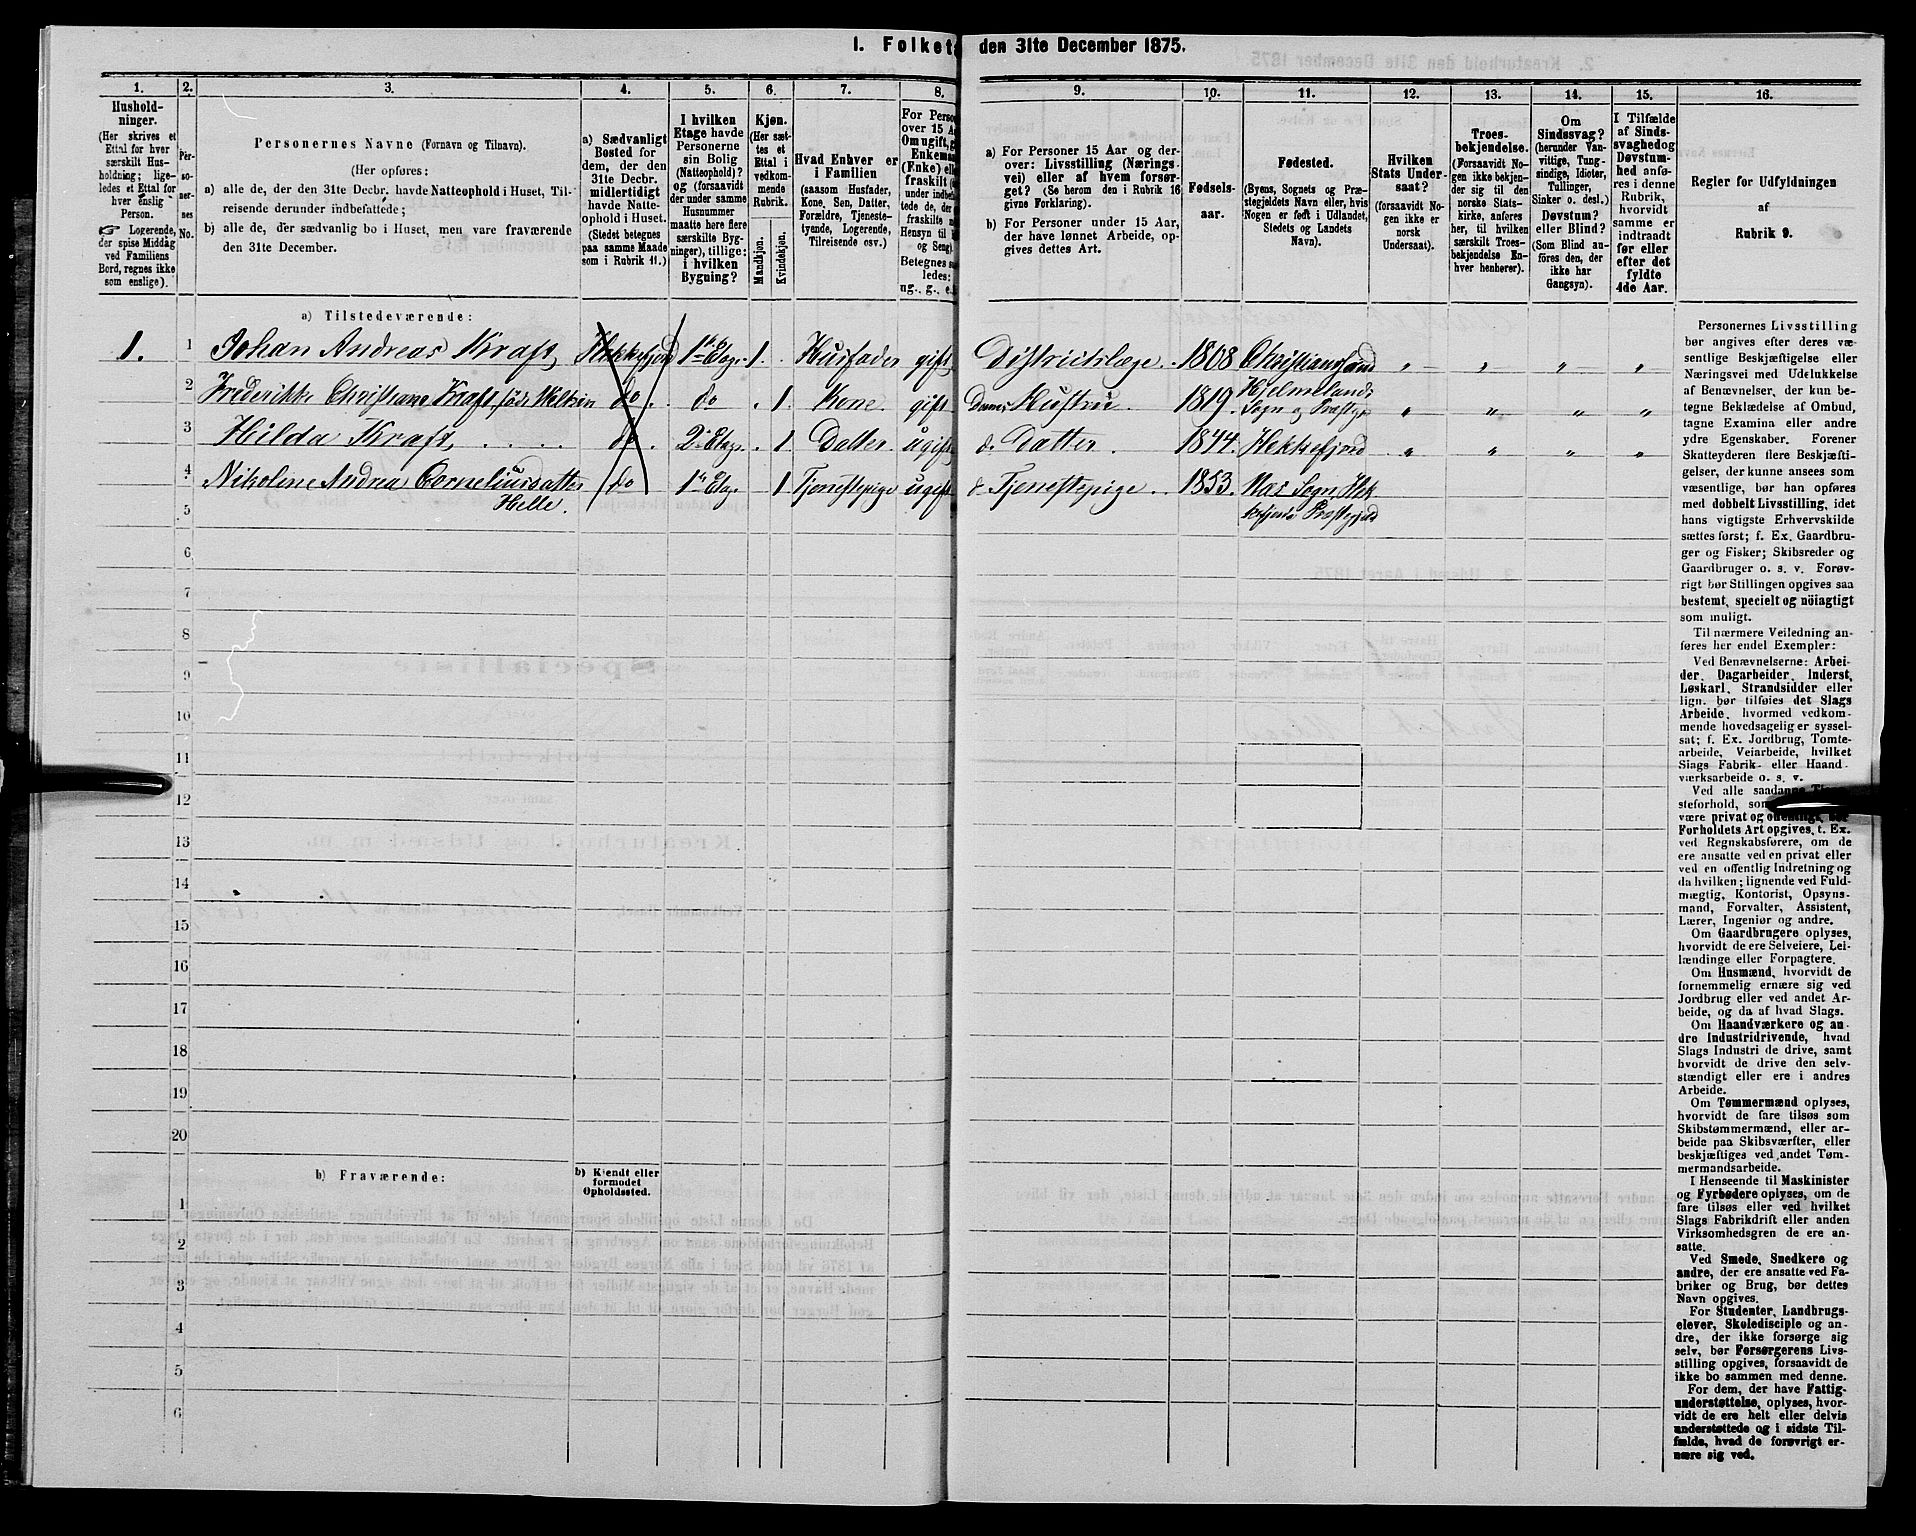 1. Folket
den 31te December 1875.
1.
Hushold-
ninger.
(Her skrives et
Ettal for hver
særskilt Hus-
holdning; lige-
ledes et Ettal for
hver enslig
Person.
☞ Logerende,
der spise Middag
ved Familiens
Bord, regnes ikke
som enslige).
2.
Per-
so-
ner-
nes
No.
3.
Personernes Navne (Fornavn og Tilnavn).
(Her opføres:
a) alle de, der den 31te Decbr. havde Natteophold i Huset, Til-
reisende derunder indbefattede;
b) alle de, der sædvanlig bo i Huset, men vare fraværende
den 31te December.
4.
a) Sædvanligt
Bosted for
dem, der den
31te Decbr.
midlertidigt
havde Natte-
ophold i Huset.
(Stedet betegnes
paa samme Maade
som i Rubrik 11.)
5.
I hvilken
Etage havde
Personerne
sin Bolig
(Natteophold)?
og (forsaavidt
der under samme
Husnummer
maatte høre flere
særskilte Byg-
ninger), tillige:
i hvilken
Bygning?
6.
Kjøn.
(Her sæt-
tes et
Ettal i
vedkom-
mende
Rubrik.
Mandkjøn.
Kvindekjøn.
7.
Hvad Enhver er
i Familien
(saasom Husfader,
Kone, Søn, Datter,
Forældre, Tjeneste-
tyende, Logerende,
Tilreisende osv.)
8.
For Perso
over 15 Aa
Om ugift, g
Enkema
(Enke) el
fraskilt
under indbe
tede de, der
fraskilte
Hensyn til
og Seng
Betegnes s
ledes:
ug., g., e.
9.
a) For Personer 15 Aar og der-
over: Livsstilling (Nærings-
vei) eller af hvem forsør-
get? (Se herom den i Rubrik 16
givne Forklaring).
b) For Personer under 15 Aar,
der have lønnet Arbeide, op-
gives dettes Art.
10.
Fødsels-
aar.
11.
Fødested.
(Byens, Sognets og Præ-
stegjeldets Navn eller, hvis
Nogen er født i Udlandet,
Stedets og Landets
Navn).
12.
Hvilken
Stats Under-
saat?
(forsaavidt No-
gen ikke er
norsk
Undersaat).
13.
Troes-
bekjendelse.
(Forsaavidt No-
gen ikke bekjen-
der sig til den
norske Stats-
kirke, anføres
her, til hvilken
særskilt Troes-
bekjendelse En-
hver henhører).
14.
Om
Sindssvag?
(herunder Van-
vittige, Tung-
sindige, Idioter,
Tullinger,
Sinker o. desl.)
Døvstum?
eller Blind?
(Som Blind an-
føres den, der
ikke har
Gangsyn).
15.
I Tilfælde
af Sinds-
svaghed og
Døvstum-
hed anfø-
res i denne
Rubrik,
hvorvidt
samme er
indtraadt
før eller
efter det
fyldte
4de Aar.
16.
Regler for Udfyldningen
af
Rubrik 9.
a) Tilstedeværende:
1. 1 Johan Andreas Kraft Flekkefjord 1ste Etage 1 Husfader gift Districtslæge 1808 Christianssand " " " "
2 Frederikke Christiane Kraft, født Veltzin do do 1 Kone gift Dennes Hustru 1819 Hjelmelands
Sogn og Præstegj " " " "
3 Hilda Kraft do 2den Etage 1 Datter ugift d. Datter 1844 Flekkefjord " " " "
4 Nikoline Andrea Corneliusdatter do 1ste Etage 1 Tjenestepige ugift d. Tjenestepige 1853 Nes Sogn, Flek-
Helle. kefjords Præstegjeld
5
6
7
8
9
10
11
12
13
14
15
16
17
18
19
20
b) Fraværende:
b) Kjendt eller
formodet
Opholdssted.
1
2
3
4
5
6
Personernes Livsstilling
bør angives efter deres væ-
sentlige Beskjæftigelse eller
Næringsvei med Udelukkelse
af Benævnelser, der kun be-
tegne Beklædelse af Ombud,
tagne Examina eller andre
ydre Egenskaber. Forener
Skatteyderen flere Beskjæfti-
gelser, der kunne ansees som
væsentlige, bør han opføres
med dobbelt Livsstilling, idet
hans vigtigste Erhvervskilde
sættes først; f. Ex. Gaardbru-
ger og Fisker; Skibsreder og
Gaardbruger o. s. v. Forøv-
rigt bør Stillingen opgives saa
bestemt, specielt og nöiagtigt
som muligt.
Til nærmere Veiledning an-
føres her endel Exempler:
Ved Benævnelserne: Arbei-
der, Dagarbeider, Inderst,
Løskarl, Strandsidder eller
lign. bør tilføies det Slags
Arbeide, hvormed vedkom-
mende hovedsagelig er syssel-
sat; f. Ex. Jordbrug, Tomte-
arbeide, Veiarbeide, hvilket
Slags Fabrik- eller Haand-
værksarbeide o. s. v.
Ved alle saadanne
steforhold, som
være privat og offentligt, bør
Forholdets Art opgives, t. Ex.
ved Regnskabsførere, om de
ere ansatte ved en privat eller
ved en offentlig Indretning og
da hvilken; lignende ved Fuld-
mægtig, Kontorist, Opsyns-
mand, Forvalter, Assistent,
Lærer, Ingeniør og andre.
Om Gaardbrugere oplyses,
hvorvidt de ere Selveiere, Lei-
lændinge eller Forpagtere.
Om Husmænd, hvorvidt de
fornemmelig ernære sig ved
Jordbrug eller ved andet Ar-
beide, og da af hvad Slags.
Om Haandværkere og an-
dre Industridrivende, hvad
Slags Industri de drive, samt
hvorvidt de drive den selv-
stændigt eller ere i andres
Arbeide.
Om Tømmermænd oplyses,
hvorvidt de fare tilsøs som
Skibstømmermænd, eller ar-
beide paa Skibsværfter, eller
beskjæftiges ved andet Tøm-
mermandsarbeide.
I Henseende til Maskinister
og Fyrbødere oplyses, om de
fare tilsøs eller ved hvilket
Slags Fabrikdrift eller anden
Virksomhedsgren de ere an-
satte.
Ved Smede, Snedkere og
andre, der ere ansatte ved Fa-
briker og Brug, bør dettes
Navn opgives.
For Studenter, Landbrugs-
elever, Skoledisciple og an-
dre, der ikke forsørge sig
selv, bør Forsørgerens Livs-
stilling opgives, forsaavidt de
ikke bo sammen med denne.
For dem, der have Fattig-
understøttelse, oplyses, hvor-
vidt de ere helt eller delvis
understøttede og i sidste Til-
fælde, hvad de forøvrigt er-
nære sig ved.